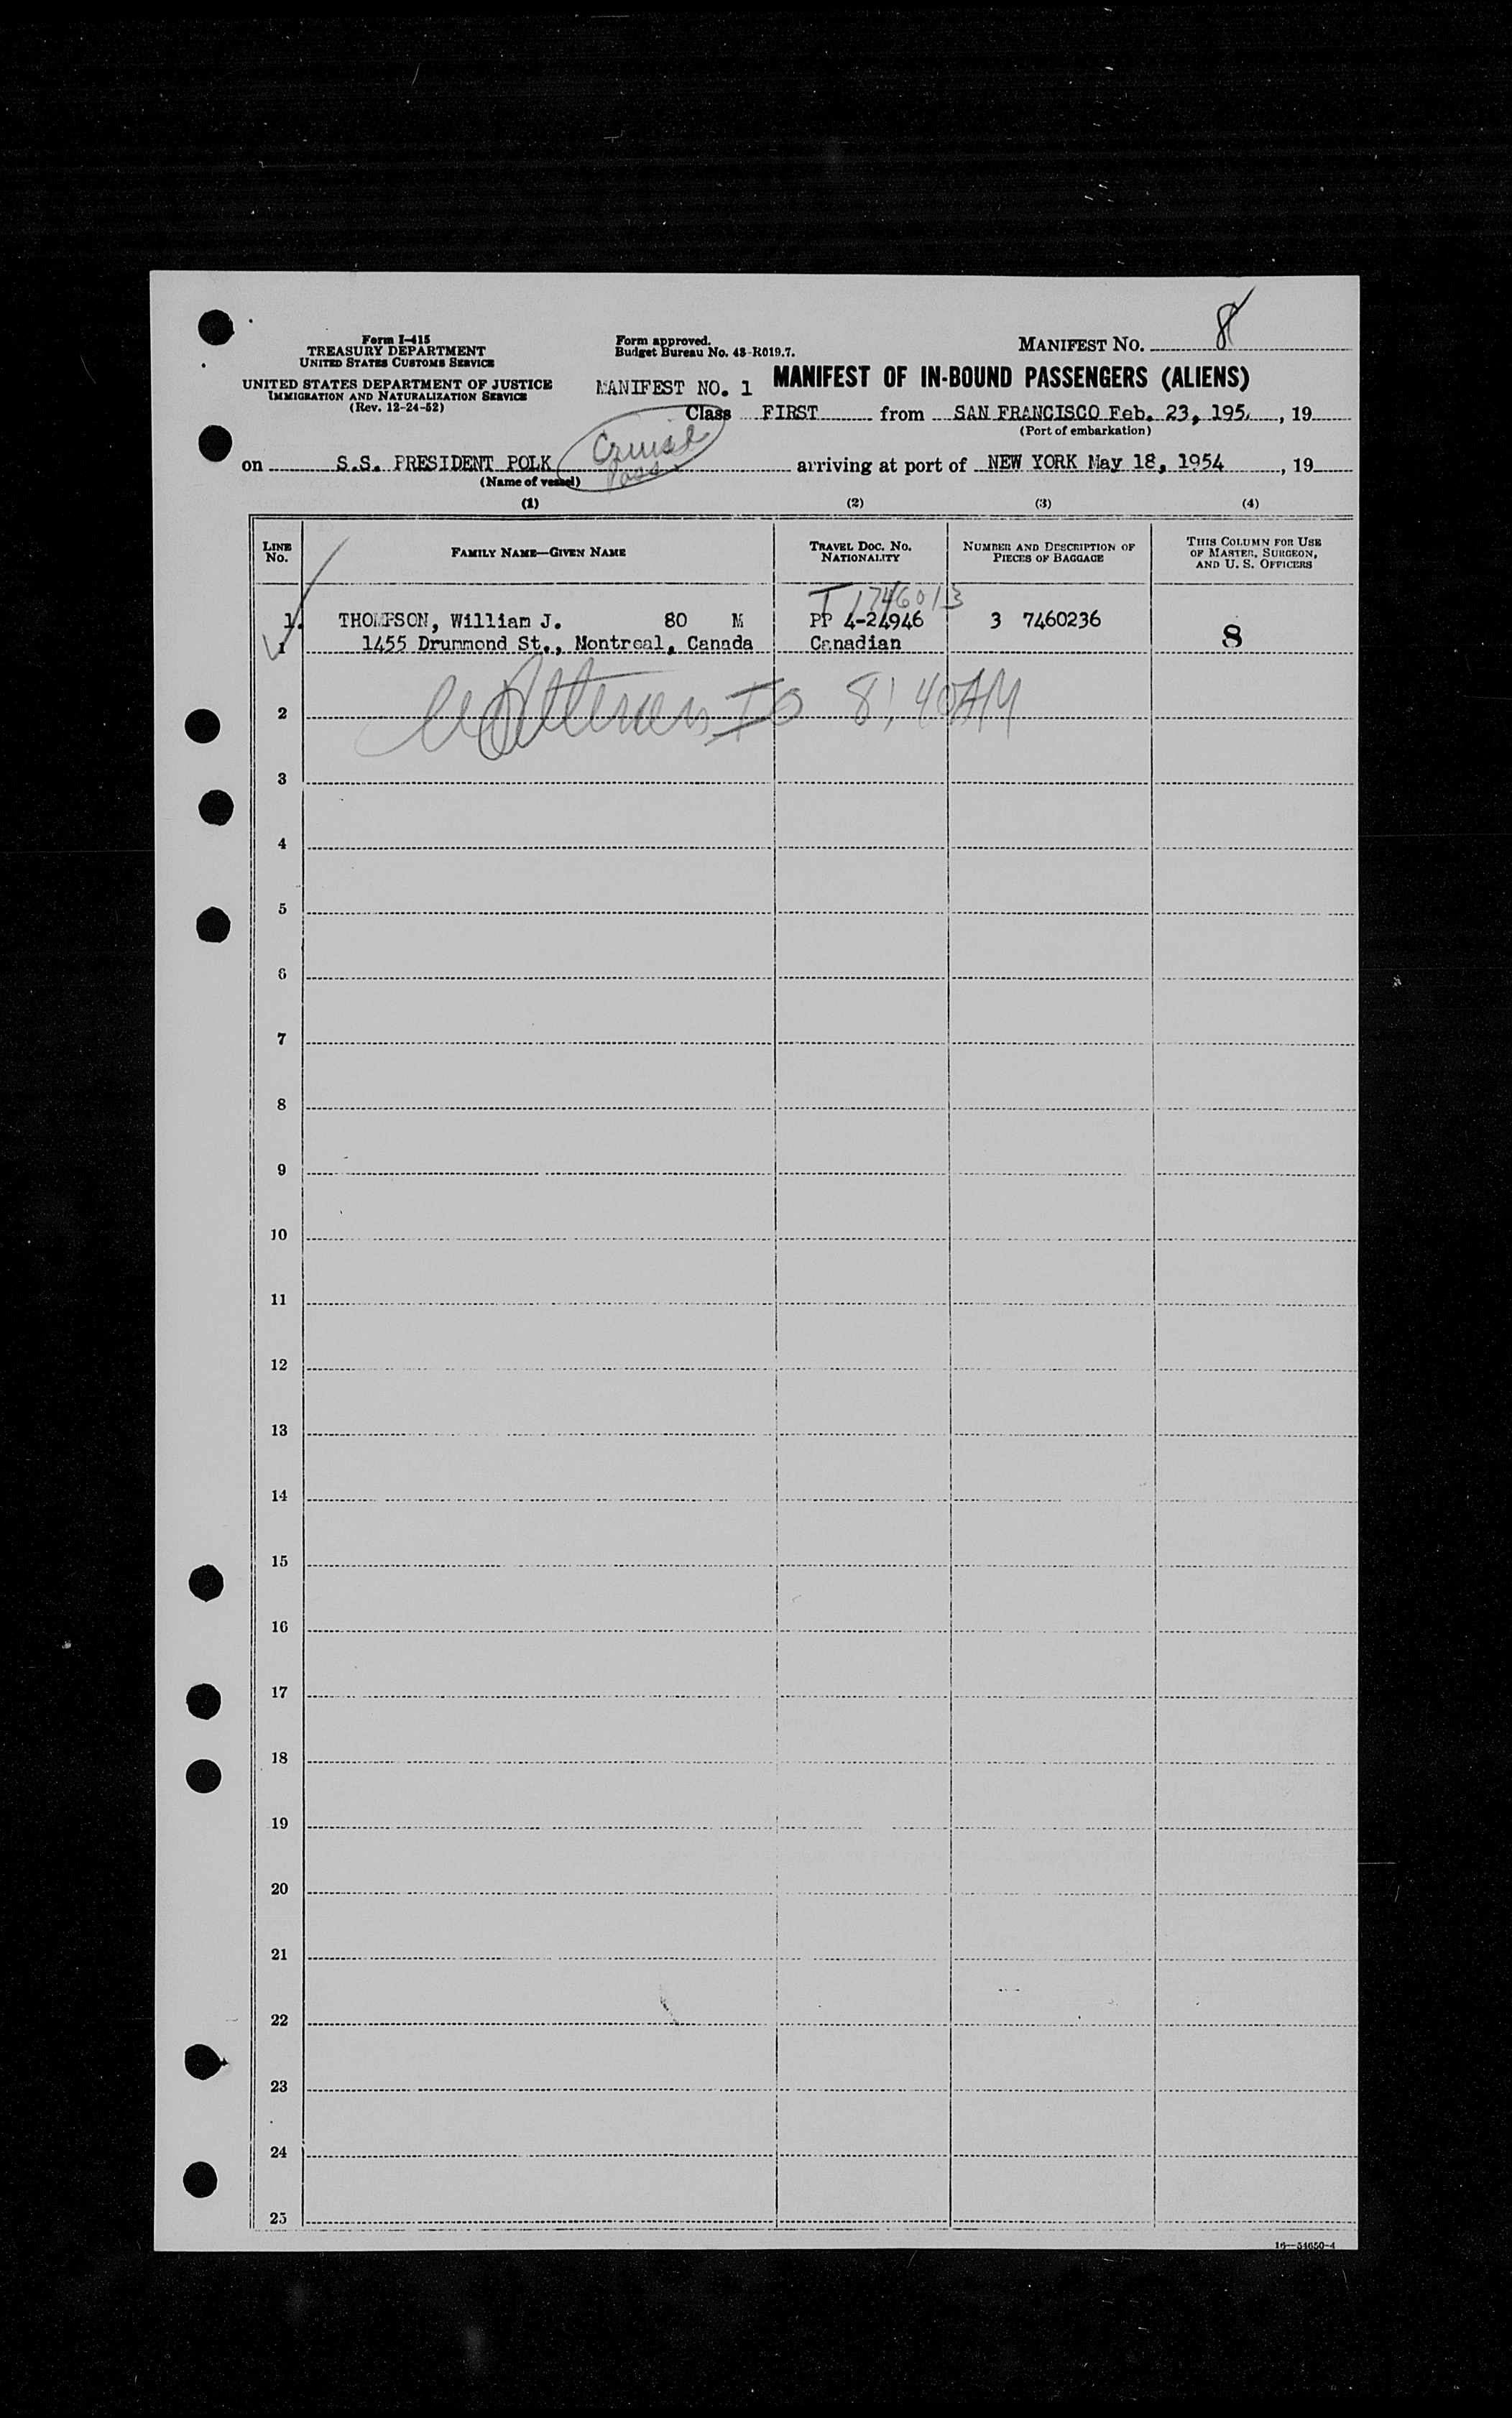 Form I-415
TREASURY DEPARTMENT
UNITED STATES CUSTOMS SERVICE
UNITED STATES DEPARTMENT OF JUSTICE
IMMIGRATION AND NATURALIZATION SERVICE
(Rev. 12-24-52)
Form approved.
Budget Bureau No. 43-R019.7.
MANIFEST NO. 8
MANIFEST NO. 1
MANIFEST OF IN-BOUND PASSENGERS (ALIENS)
Class FIRST from SAN FRANCISCO Feb. 23, 195 , 19
(Port of embarkation)
Cruise
Pass
on S.S. PRESIDENT POLK arriving at port of NEW YORK May 18, 1954 , 19
(Name of vessel)
(1) (2) (3) (4)
LINE NO.
FAMILY NAME—GIVEN NAME
TRAVEL DOC. NO. NATIONALITY
NUMBER AND DESCRIPTION OF PIECES OF BAGGAGE
THIS COLUMN FOR USE OF MASTER, SURGEON, AND U. S. OFFICERS
1746013
1. THOMPSON, William J. 80 M PP 4-24946 3 7460236
1 1455 Drummond St., Montreal, Canada Canadian 8
2 IO 8:40AM
3
4
5
6
7
8
9
10
11
12
13
14
15
16
17
18
19
20
21
22
23
24
25
16—54650-4